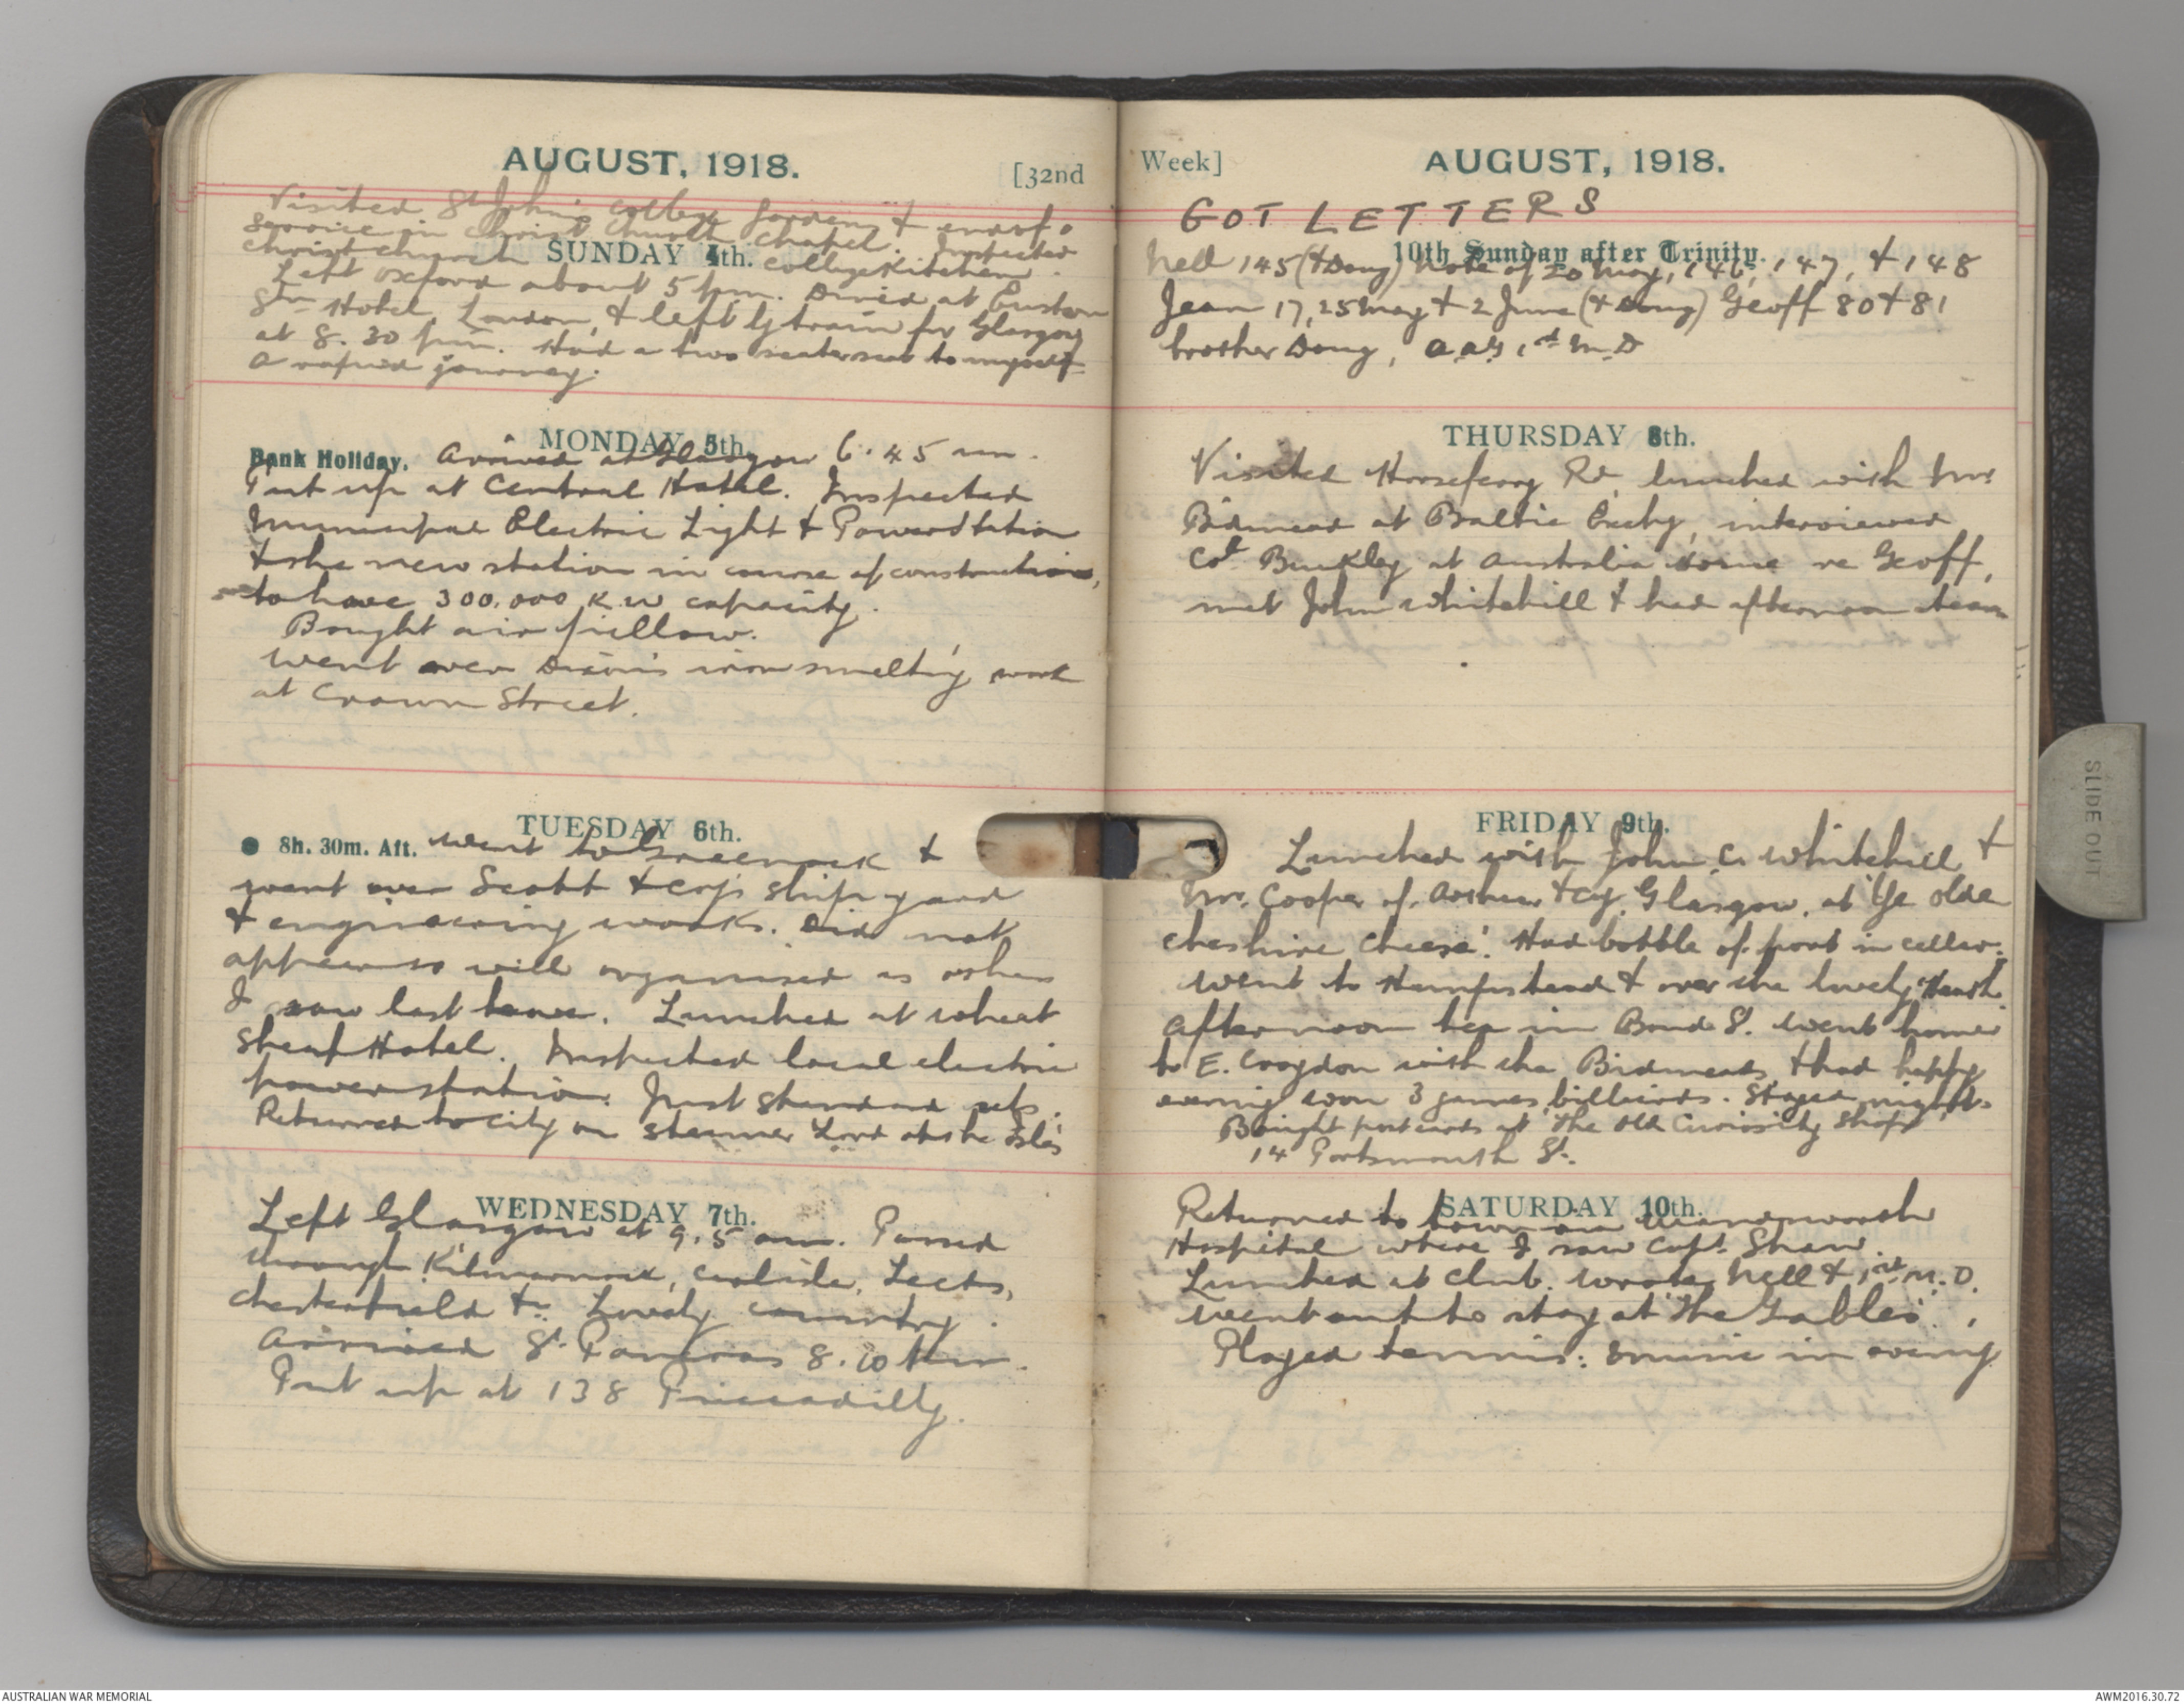 AUGUST, 1918.
[32nd
Visited St John's College Gardens & end of a
service in Christ Church Chapel. Inspected
Christchurch college Kitchen.
SUNDAY 4th.
Left Oxford about 5 pm. Dined at Euston
Stn Hotel, London, & left by train for Glasgow
at 8.30 pm. Had a two seater seat to myself
a journey.
MONDAY 5th.
Bank Holiday.
Arrived at Glasgow 6.45 am.
Put up at Central Hotel. Inspected
Municipal Electric Light & Power Station
& the new station in course of construction,
to have 300,000 K.W capacity.
Bought air pillow.
Went over Dixon's iron smelting work
at Crown Street.
TUESDAY 6th.
8h. 30m. Aft.
Went to Greenock &
went over Scott & Coy's ship yard
& engineering works. Did not
appear so well organised as when
I saw last. Lunched at Wheat
Sheaf Hotel. Inspected local electric
power station. Just standard sets.
Returned to city on steamer 'Lord of the Isles'
WEDNESDAY 7th.
Left Glasgow at 9.5 am. Passed
through Kilmarnock, Carlisle, Leeds,
Chesterfield &c. Lovely country.
Arrived St. Pancras 8.10 pm.
Put up at 138 Piccadilly.
Week]
AUGUST, 1918.
GOT LETTERS
10th Sunday after Trinity.
Nell 145 (& Doug) Note of 20 May, 146, 147, & 148
Jean 17, 25 May & 2 June (& Doug) Geoff 80 & 81
brother Doug, A.A.G 1st M.D
THURSDAY 8th.
Visited Horseferry Rd, lunched with Mr
Birdmead at Baltic Exchg, interviewed
Col Buckley at Australia House re Geoff,
met John Whitehill & had afternoon tea
FRIDAY 9th.
Lunched with John C. Whitehill &
Mr. Cooper of Arthur & Coy. Glasgow, at 'Ye olde
Cheshire Cheese'. Had bottle of port in cellar.
Went to Hampstead & over the lovely Heath.
Afternoon tea in Bond St. Went home
to E. Croydon with the Birdmeads & had happy
evening won 3 games billiards. Stayed night.
Bought postcards at 'The Old Curiosity Shop'
14 Portsmouth St.
SATURDAY 10th.
Returned to town on Wandsworth
Hospital where I saw Capt. Shaw.
Lunched at Club. Wrote Nell & 1st M.D.
Went out to stay at "The Gables".
Played tennis: music in evening
SLIDE OUT
AUSTRALIAN WAR MEMORIAL
AWM2016.30.72